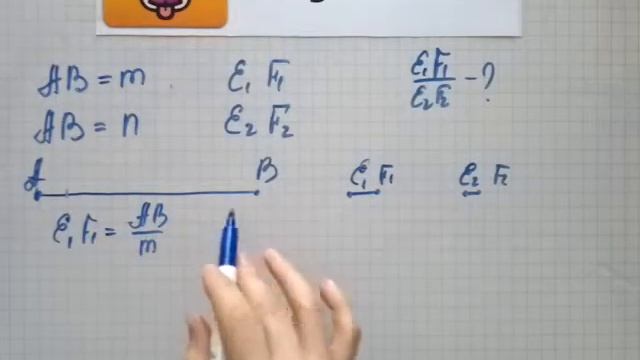 AB = m E₁ F₁ E₁F₁/E₂F₂ - ?
AB = n E₂ F₂
A B E₁ F₁ E₂ F₂
E₁ F₁ = AB/m